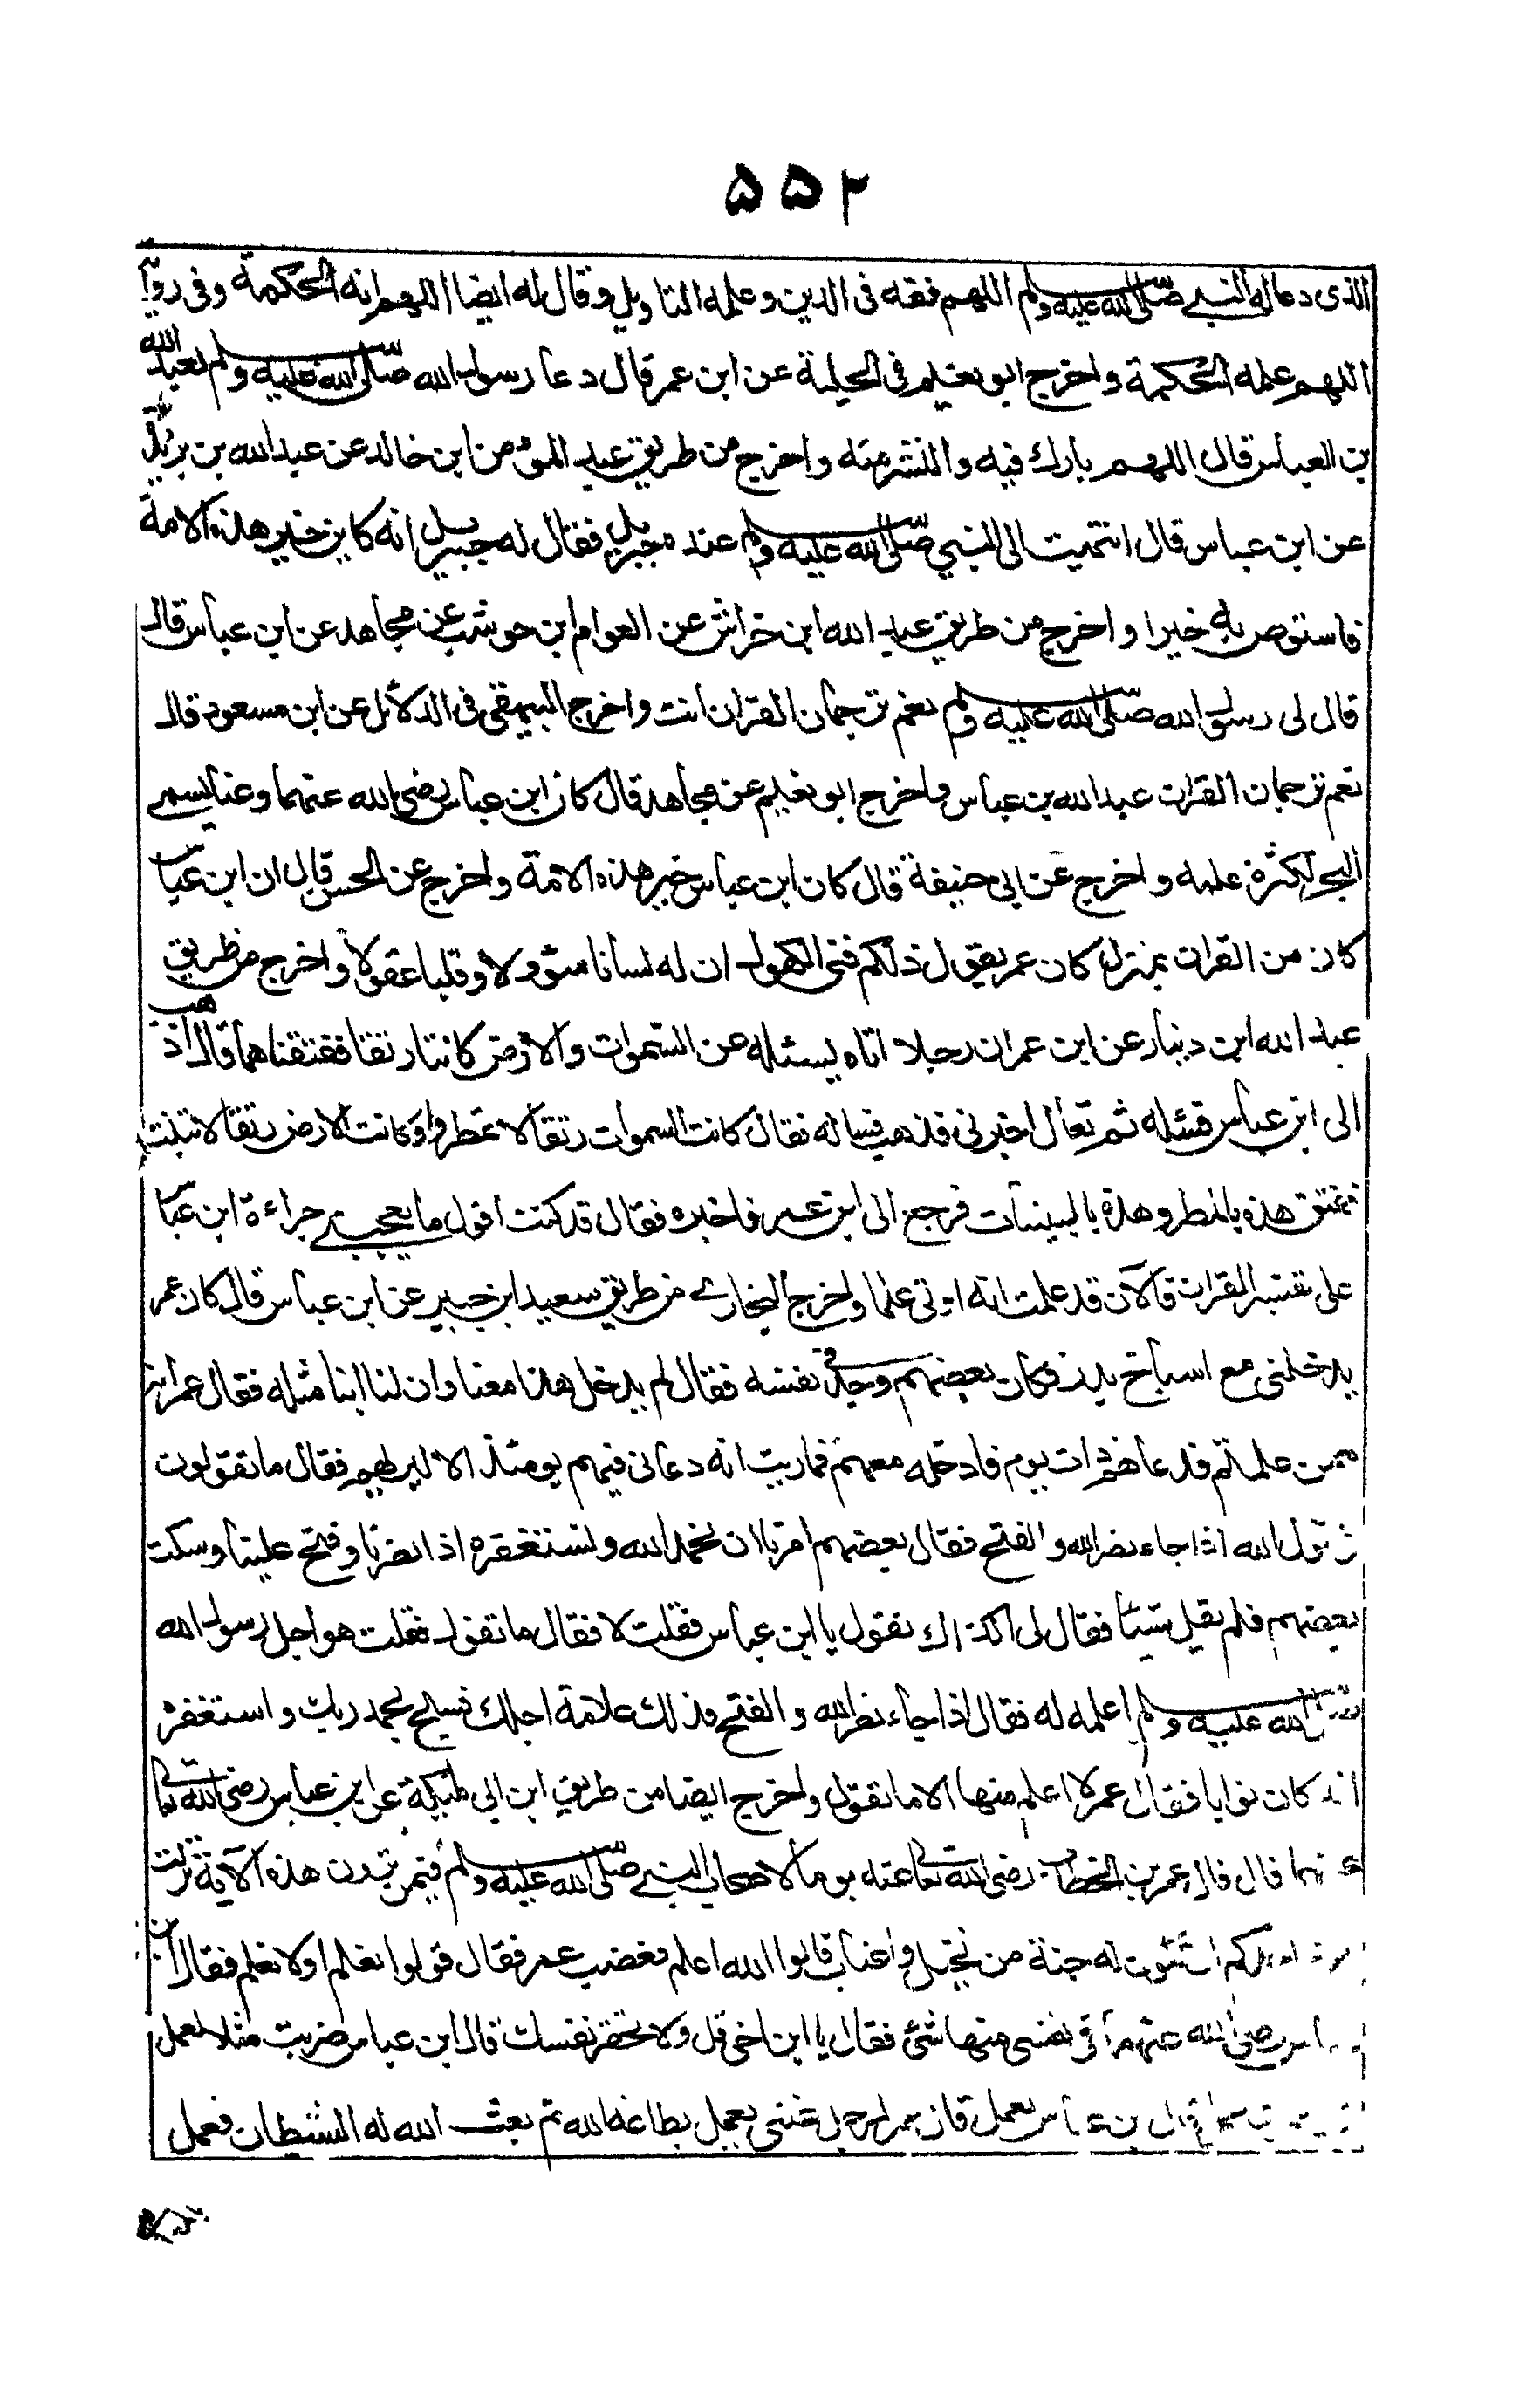 ۵۵۲
الذی دعا له النبی صلی الله علیه ولم اللهم فقه فی الدین وعلمه التاویل وقال له ایضا اللهم اته الحکمة وفی روایة
اللهم علمه الحکمة واخرج ابو نعیم فی الحلیة عن ابن عمر قال دعا رسول الله صلی الله علیه ولم لعبد الله
بن العباس قال اللهم بارك فیه وانشر منه واخرج من طریق عبد المؤمن ابن خالد عن عبد الله بن بریدة
عن ابن عباس قال انتهیت الی النبی صلی الله علیه ولم عند جبریل فقال له جبریل انه کاین خیر هذه الامة
فاستوص به خیرا واخرج من طریق عبد الله ابن خراش عن العوام ابن حوشب عن مجاهد عن ابن عباس قال
قال لی رسول الله صلی الله علیه ولم نعم ترجمان القران انت واخرج البیهقی فی الدلائل عن ابن مسعود قال
نعم ترجمان القران عبد الله بن عباس واخرج ابو نعیم عن مجاهد قال کان ابن عباس رضی الله عنهما یسمی
البحر لکثرة علمه واخرج عن ابی حنیفة قال کان ابن عباس خیر هذه الامة واخرج عن الحسن قال ان ابن عباس
کان من القران بمنزل کان عمر یقول ذلکم فتی الکهول ان له لسانا سئولا وقلبا عقولا واخرج من طریق
عبد الله ابن دینار عن ابن عمر ان رجلا اتاه یسئله عن السموات والارض کانتا رتقا ففتقناهما قال اذهب
الی ابن عباس فسئله ثم تعال اخبرنی فذهب فساله فقال کانت السموات رتقا لا تمطر وکانت الارض رتقا لا تنبت
ففتق هذه بالمطر وهذه بالنبات فرجع الی ابن عمر فاخبره فقال قد کنت اقول ما یعجبنی جراءة ابن عباس
علی تفسیر القران فالآن قد علمت انه اوتی علما واخرج البخاری من طریق سعید ابن جبیر عن ابن عباس قال کان عمر
یدخلنی مع اشیاخ بدر فکان بعضهم وجد فی نفسه فقال لم یدخل هذا معنا وان لنا ابنا مثله فقال عمر انه
ممن علمتم فدعاهم ذات یوم فادخله معهم فما رایت انه دعانی فیهم یومئذ الا لیریهم فقال ما تقولون
فی قول الله اذا جاء نصر الله والفتح فقال بعضهم امرنا ان نحمد الله ونستغفره اذا نصرنا وفتح علینا وسکت
بعضهم فلم یقل شیئا فقال لی اکذاك تقول یا ابن عباس فقلت لا فقال ما تقول فقلت هو اجل رسول الله
صلی الله علیه ولم اعلمه له فقال اذا جاء نصر الله والفتح فذلك علامة اجلك فسبح بحمد ربك واستغفره
انه کان توابا فقال عمر لا اعلم منها الا ما تقول واخرج ایضا من طریق ابن ابی ملیکة عن ابن عباس رضی الله تعا
عنهما قال قال عمر بن الخطاب رضی الله تعا عنه یوما لاصحاب النبی صلی الله علیه ولم فیمن ترون هذه الآیة نزلت
احدکم ان تکون له جنة من نخیل واعناب قالوا الله اعلم فغضب عمر فقال قولوا نعلم او لا نعلم فقال ابن
رضی الله عنهما فی نفسی منها شئ فقال یا ابن اخی قل ولا تحقر نفسك قال ابن عباس ضربت مثلا لعمل
قال ابن عباس لعمل قال عمر لرجل غنی یعمل بطاعة الله ثم بعث الله له الشیطان فعمل